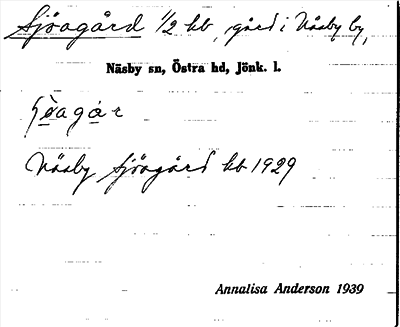 Sjöagård 1/2 hb, gård i Näsby by,
Näsby sn, Östra hd, Jönk. l.
Näsby Sjögård hb 1929
Annalisa Anderson 1939